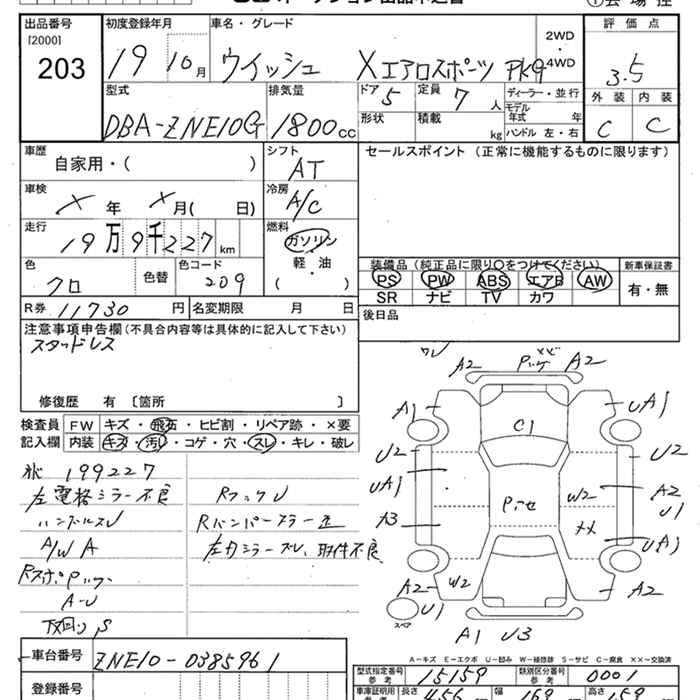 出品番号 初度登録年月 車名・グレード 評価点
[2000]
203 19 10月 ウイッシュ Xエアロスポーツ PKg 2WD 4WD 3.5
型式 排気量 ドア 5 定員 7人 ディーラー・並行 外装 内装
DBA-ZNE10G 1800cc 形状 積載 kg モデル年式 年 ハンドル 左・右 C C
車歴 自家用・( ) シフト AT セールスポイント (正常に機能するものに限ります)
車検 X年 X月( 日) 冷房 A/C
走行 19万9千227km 燃料 ガソリン・軽油 ( )
色 クロ 色替 色コード 209
装備品 (純正品に限り○をつけてください) 新車保証書
PS PW ABS エアB AW 有・無
SR ナビ TV カワ
R券 11730円 名変期限 月 日 後日品
注意事項申告欄 (不具合内容等は具体的に記入して下さい)
スタッドレス
修復歴 有 [箇所 ]
検査員 FW キズ・飛石・ヒビ割・リペア跡・×要
記入欄 内装 キズ・汚レ・コゲ・穴・スレ・キレ・破レ
199227
左電格ミラー不良 RフックU
ハンドルスレ Rバンパーカラー
A/W A 左右ミラーズレ、取付不良
A-U
下廻りS
車台番号 ZNE10-0385961
登録番号
A2 A2
A1 C1 UA1
U2 U2
UA1 W2 A2
U1
A3 ×× UA1
A2 W2 A2
U1
スペア
A1 U3
A－キズ E－エクボ U－凹み W－補修跡 S－サビ C－腐食 ××～交換済
型式指定番号 参考 15159 類別区分番号 参考 0001
車庫証明用 長さ 455 幅 169 高さ 159